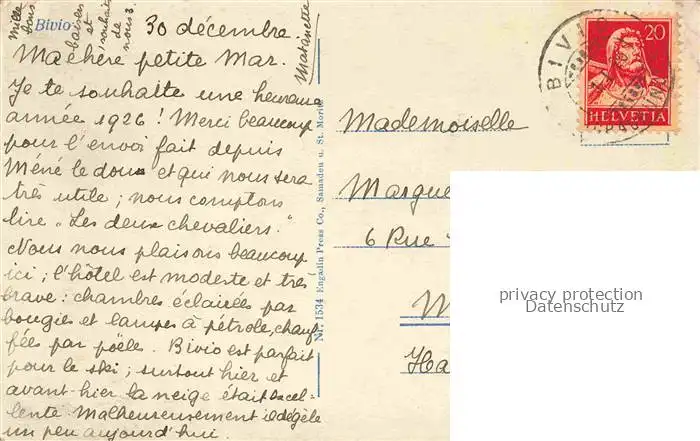 Bivio.
30 décembre.
Ma chère petite Mar.
Je te souhaite une heureuse
année 1926 ! Merci beaucoup
pour l'envoi fait depuis
Méné le doux et qui nous sera
très utile ; nous comptons
lire "Les deux chevaliers."
Nous nous plaisons beaucoup
ici ; l'hôtel est modeste et très
brave : chambres éclairées par
bougies et lampes à pétrole, chauf-
fées par poëles. Bivio est parfait
pour le ski ; surtout hier et
avant-hier la neige était excel-
lente Malheureusement il dégèle
un peu aujourd'hui.
Mille
bons
baisers
et
souhaits
de
nous 3
Nr. 1534 Engadin Press Co., Samaden u. St. Moritz
BIVIO
20
HELVETIA
Mademoiselle
Margue
6 Rue
M
Ha
privacy protection
Datenschutz